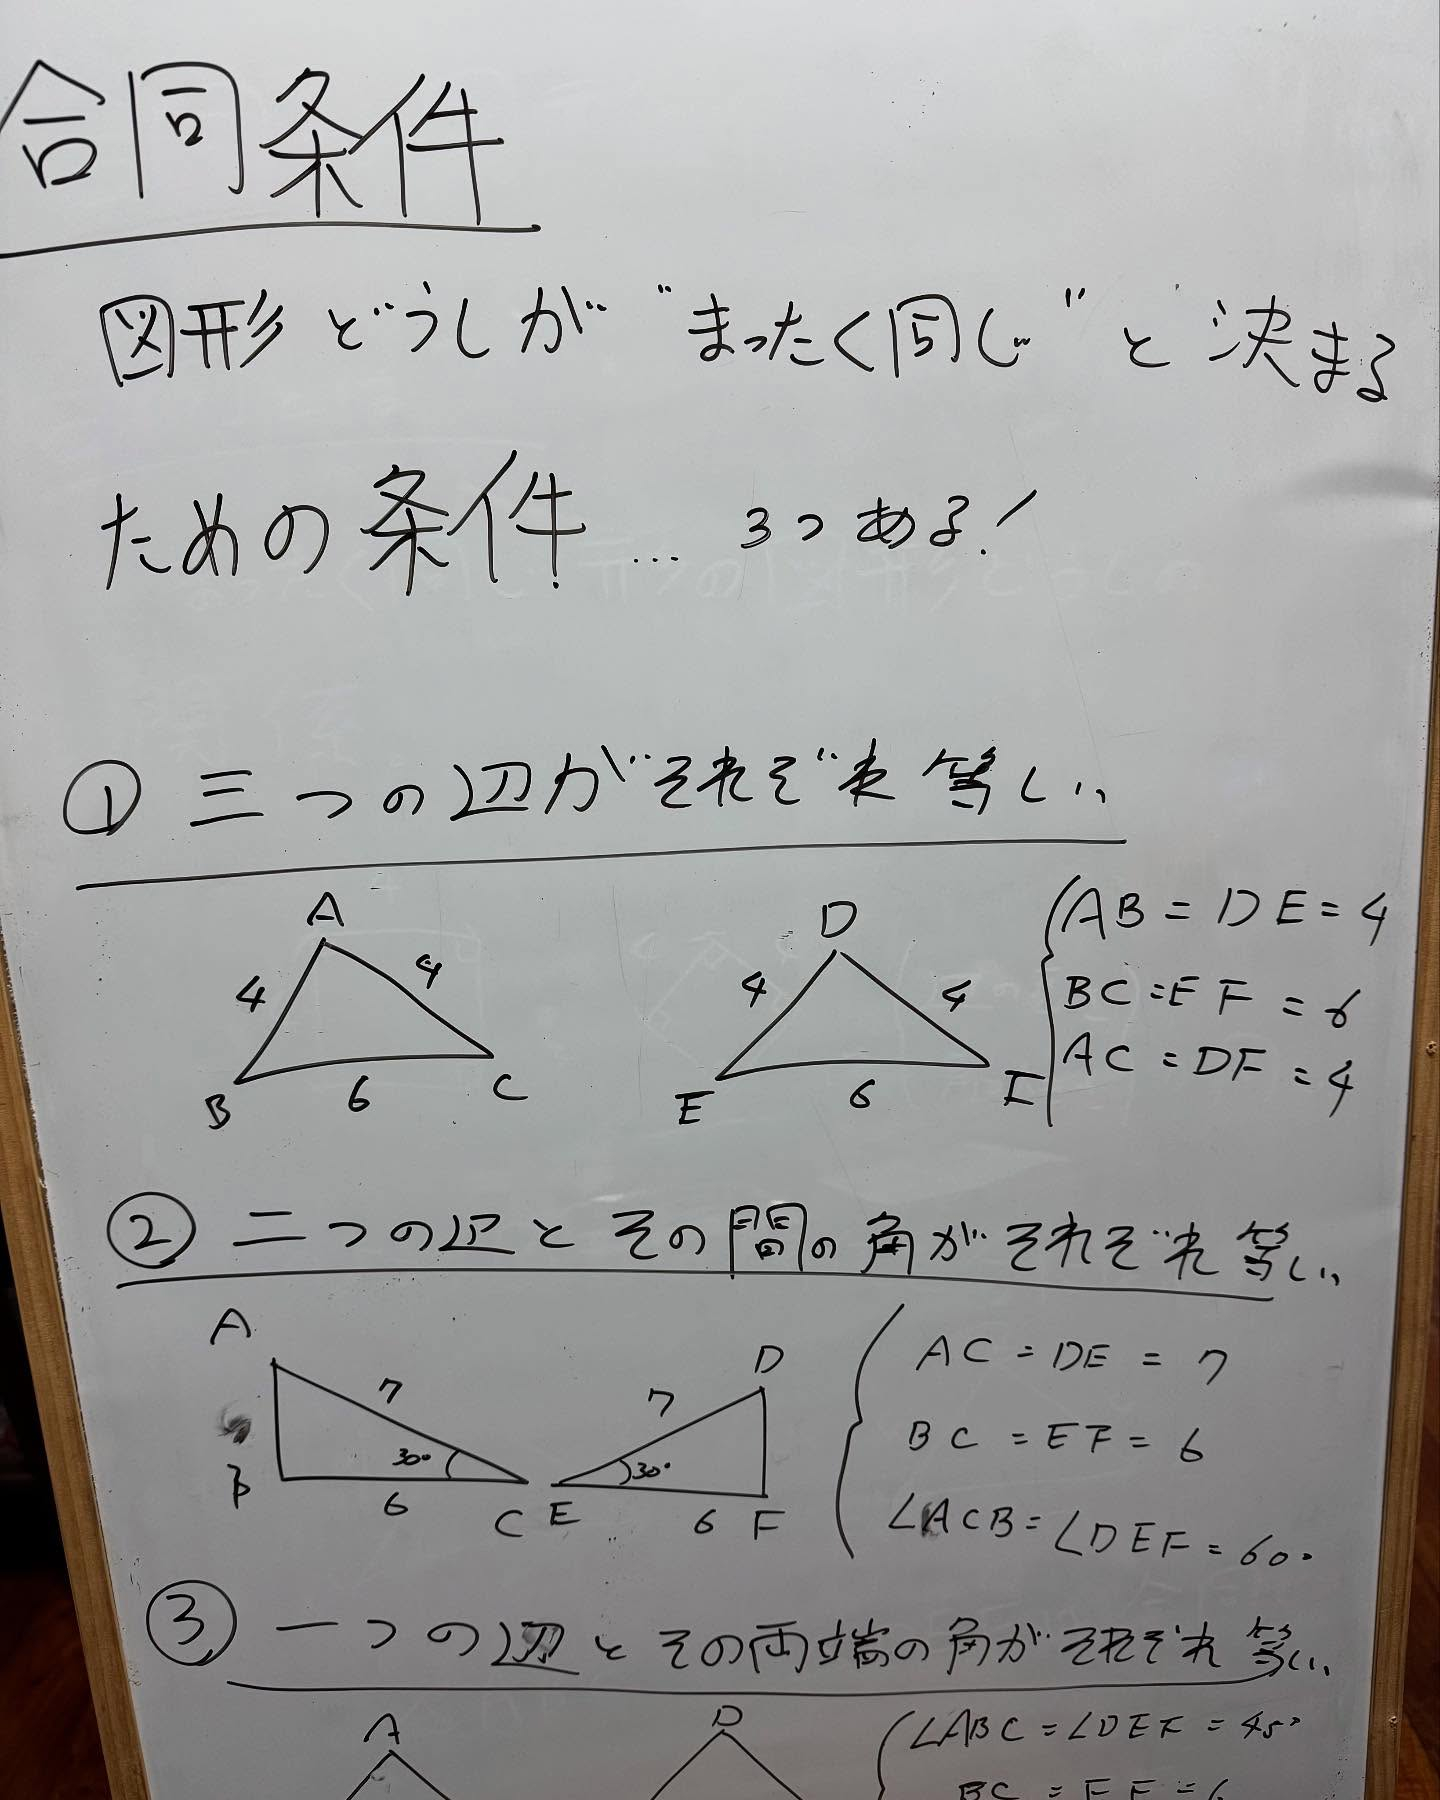 合同条件
図形どうしが"まったく同じ"と決まる
ための条件… 3つある!
① 三つの辺がそれぞれ等しい
A
4 4
B 6 C
D
4 4
E 6 F
AB = DE = 4
BC = EF = 6
AC = DF = 4
② 二つの辺とその間の角がそれぞれ等しい
A
7
30°
B 6 C
D
7
30°
E 6 F
AC = DE = 7
BC = EF = 6
∠ACB = ∠DEF = 60°
③ 一つの辺とその両端の角がそれぞれ等しい
A
D
∠ABC = ∠DEF = 45°
BC = EF = 6